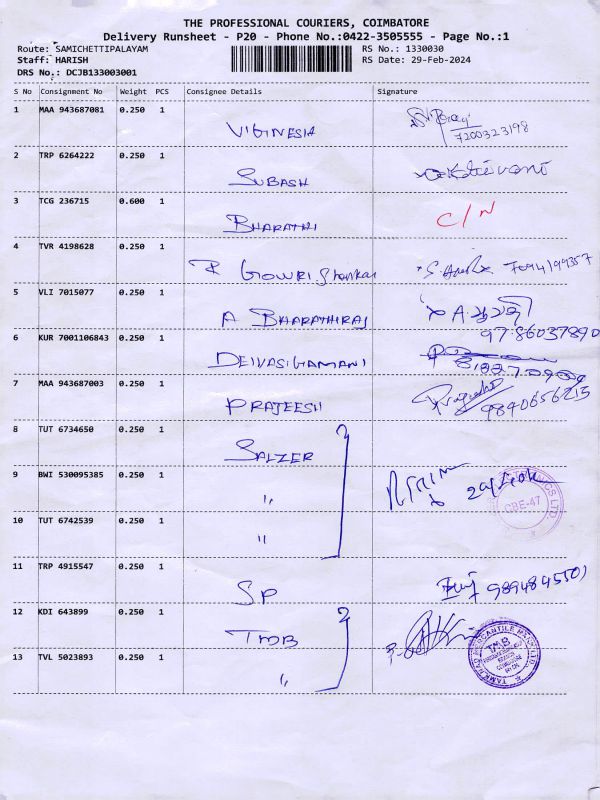 THE PROFESSIONAL COURIERS, COIMBATORE
Delivery Runsheet - P20 - Phone No.:0422-3505555 - Page No.:1
Route: SAMICHETTIPALAYAM RS No.: 1330030
Staff: HARISH RS Date: 29-Feb-2024
DRS No.: DCJB133003001
S No Consignment No Weight PCS Consignee Details Signature
1 MAA 943687081 0.250 1
VIGINESIA 7200323198
2 TRP 6264222 0.250 1
SUBASH
3 TCG 236715 0.600 1
BHARATHI C/N
4 TVR 4198628 0.250 1
R GOWRI Shankar 7094199357
5 VLI 7015077 0.250 1
A BHARATHIRAJ
6 KUR 7001106843 0.250 1 97-86037890
DEIVASIGAMANI
7 MAA 943687003 0.250 1
PRAJEESH 9840656215
8 TUT 6734650 0.250 1
SALZER
9 BWI 530095385 0.250 1
"
CBE-47
10 TUT 6742539 0.250 1
"
11 TRP 4915547 0.250 1
SP 9894845501
12 KDI 643899 0.250 1
TMB
13 TVL 5023893 0.250 1
"